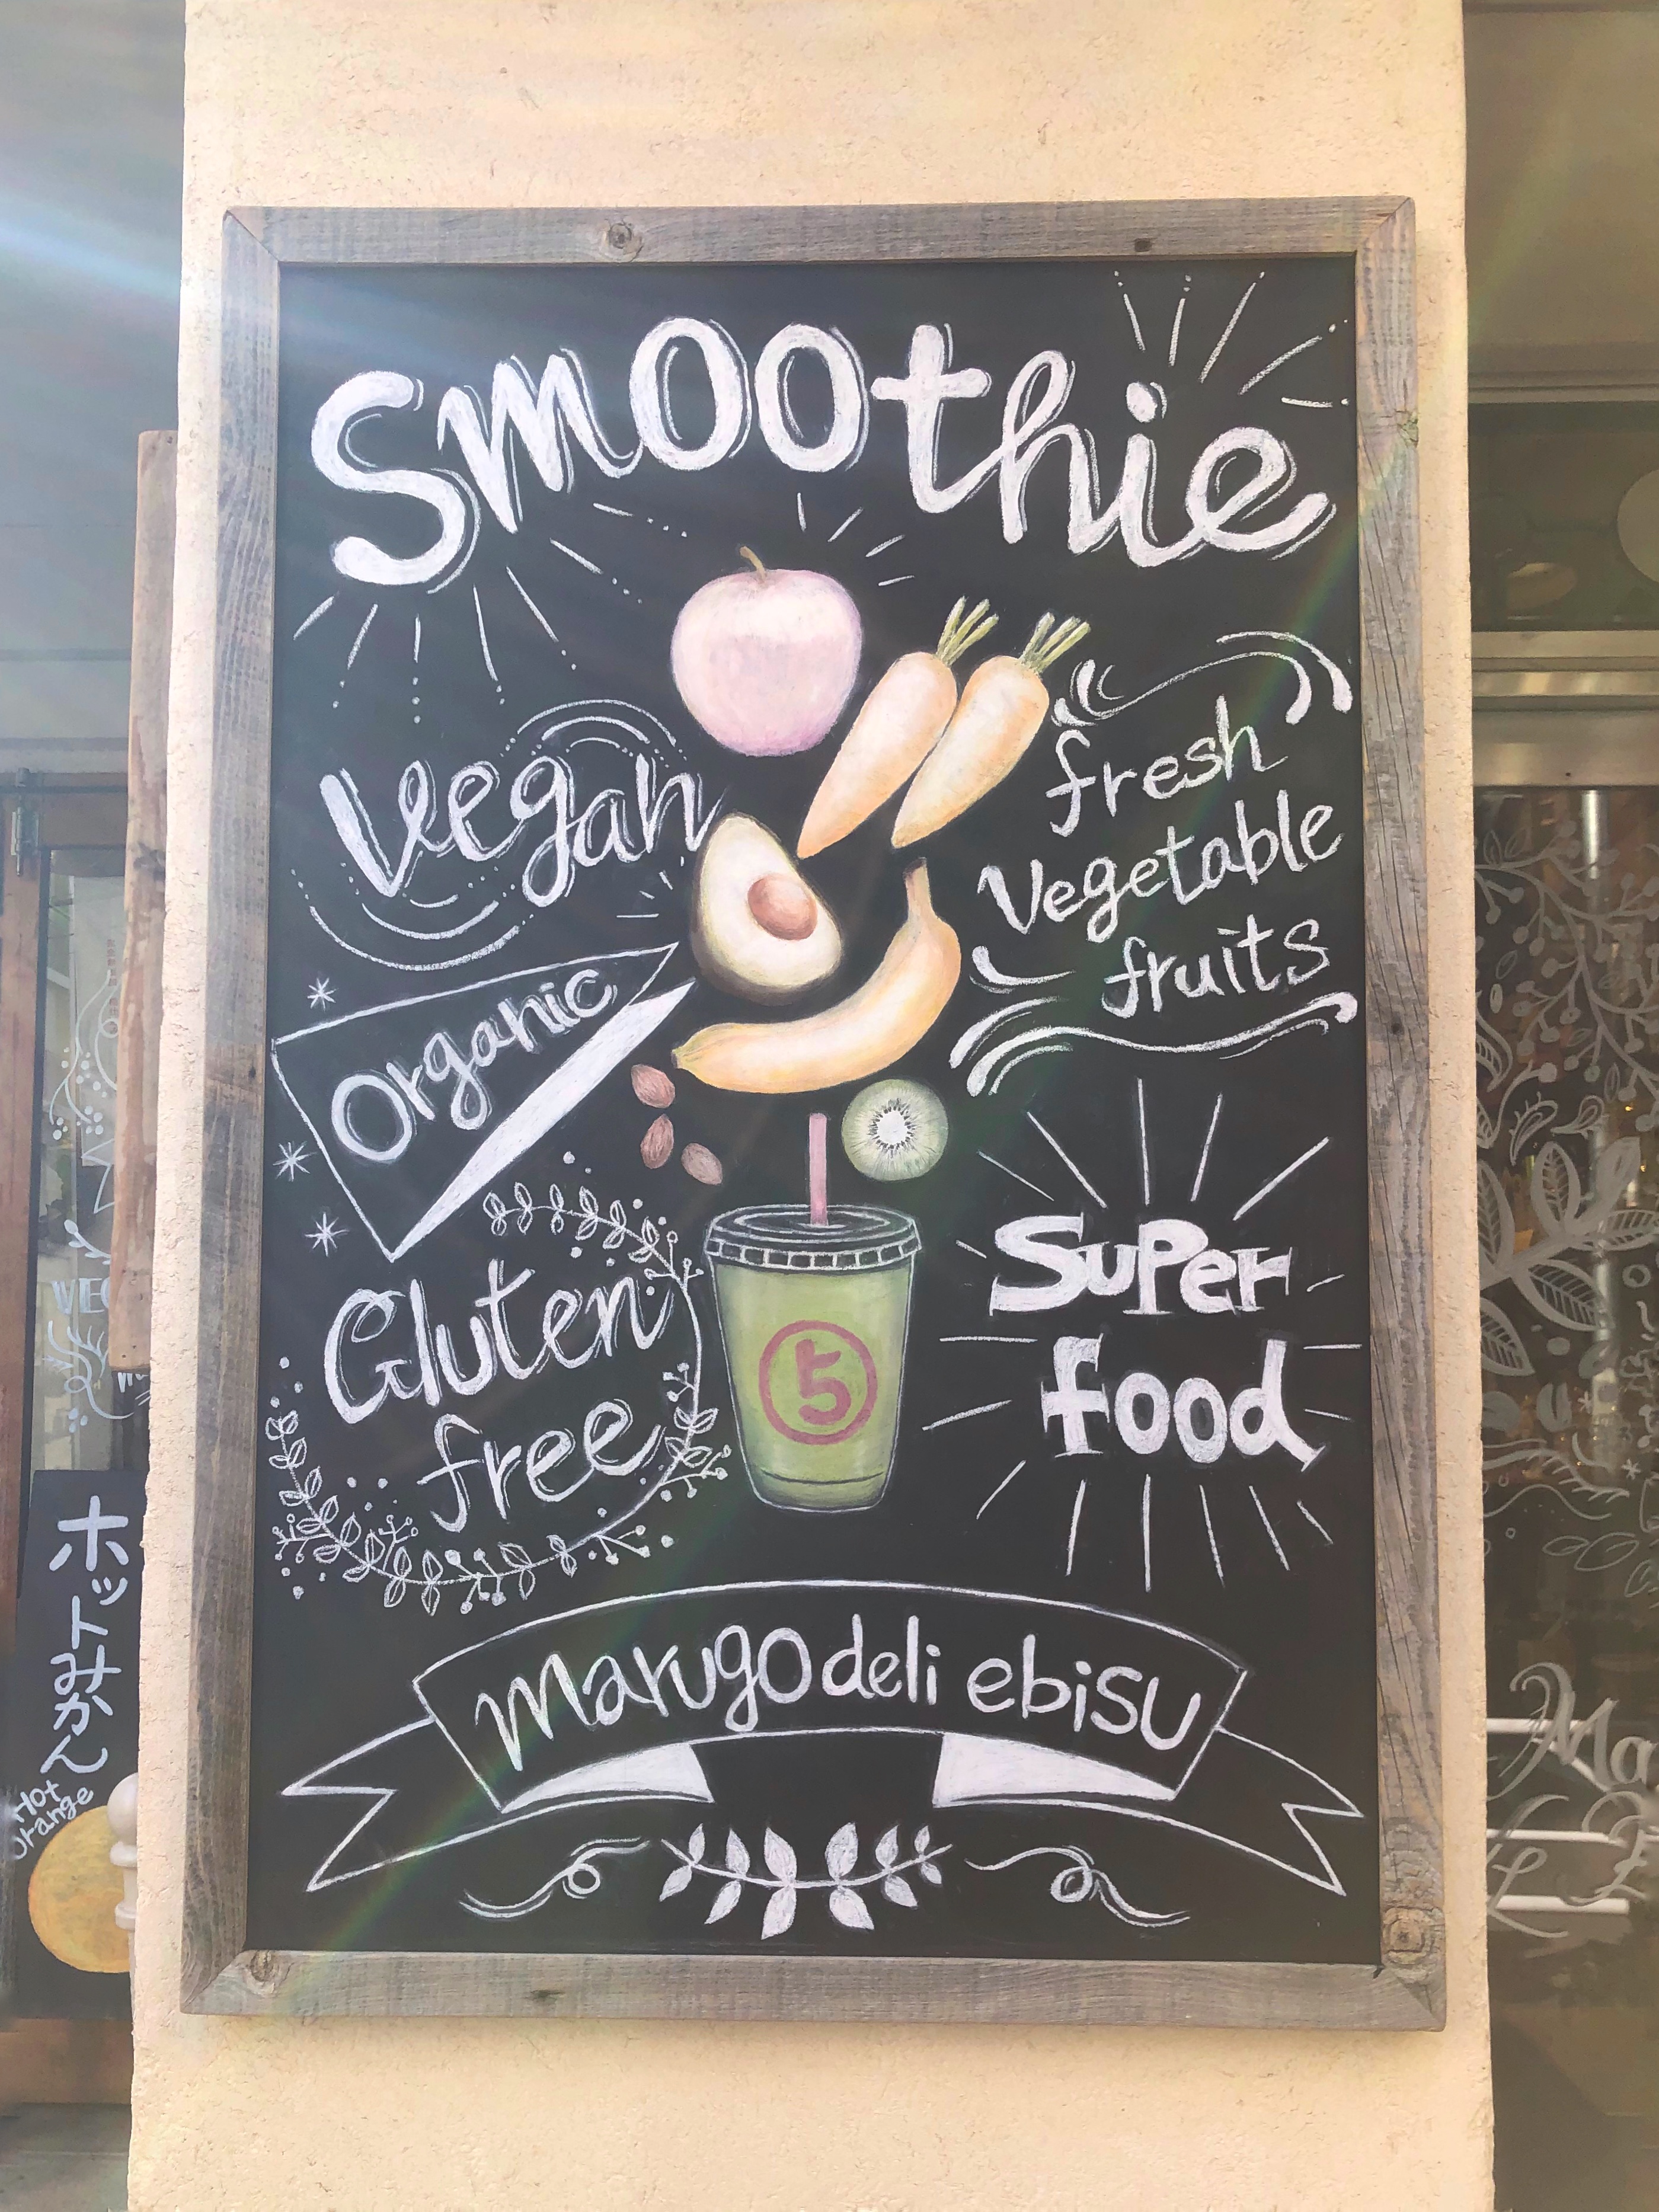 Smoothie
Vegan
fresh
Vegetable
fruits
Organic
Gluten
free
Super
food
5
marugo deli ebisu
ホットみかん
Hot
orange
VEG
Ma